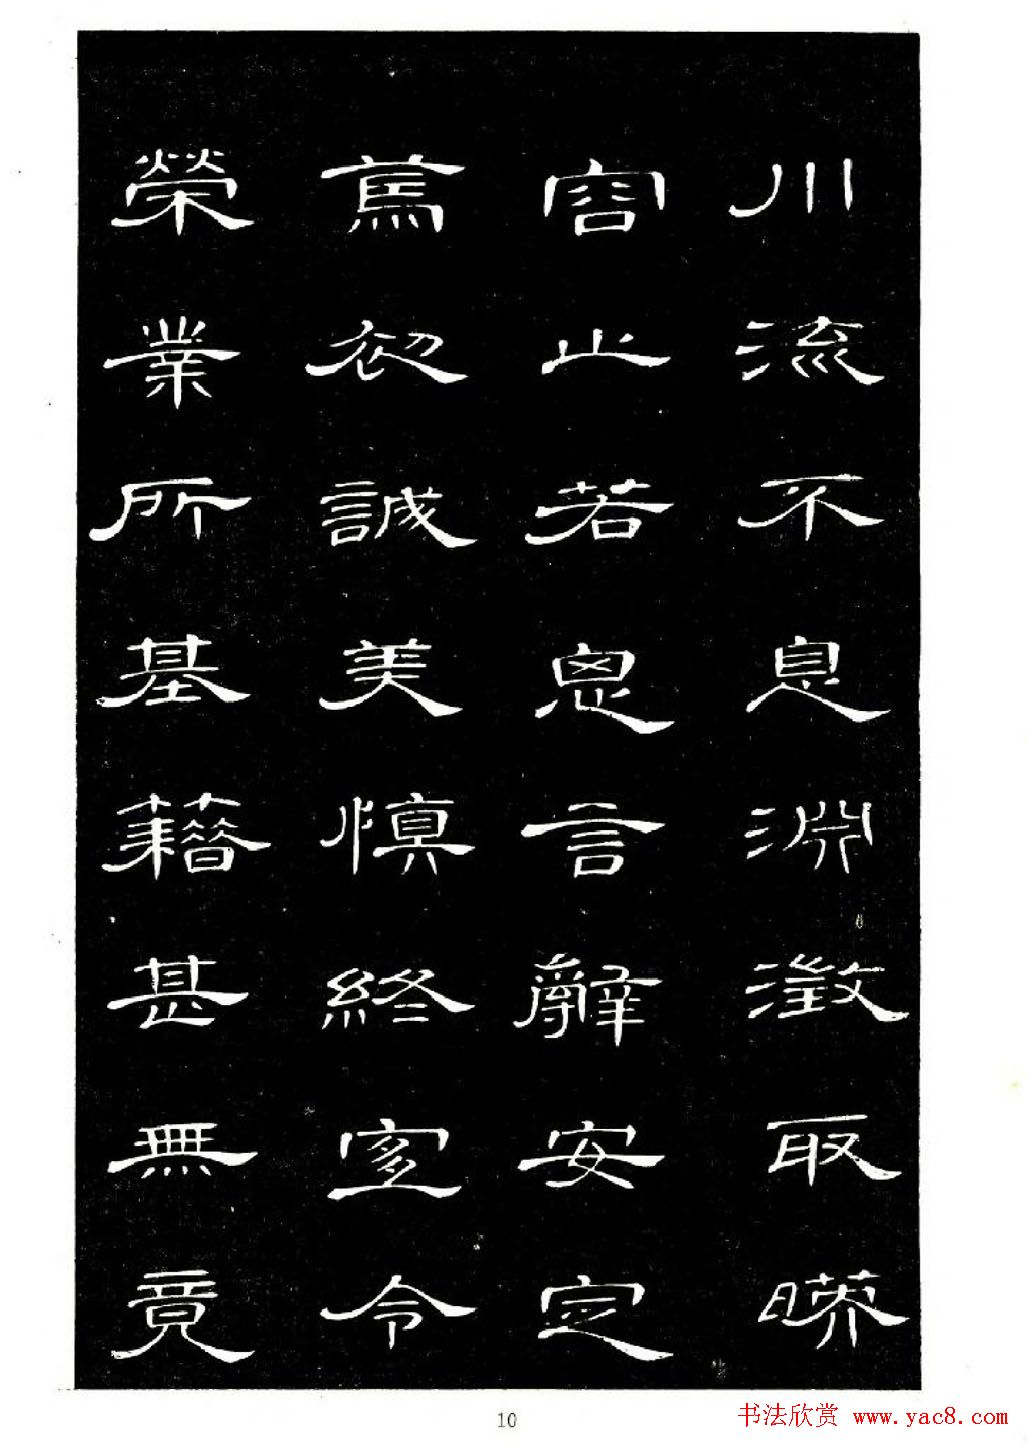 川流不息淵澂取暎
容止若思言辭安定
篤初誠美慎終宜令
榮業所基藉甚無竟
10
书法欣赏 www.yac8.com